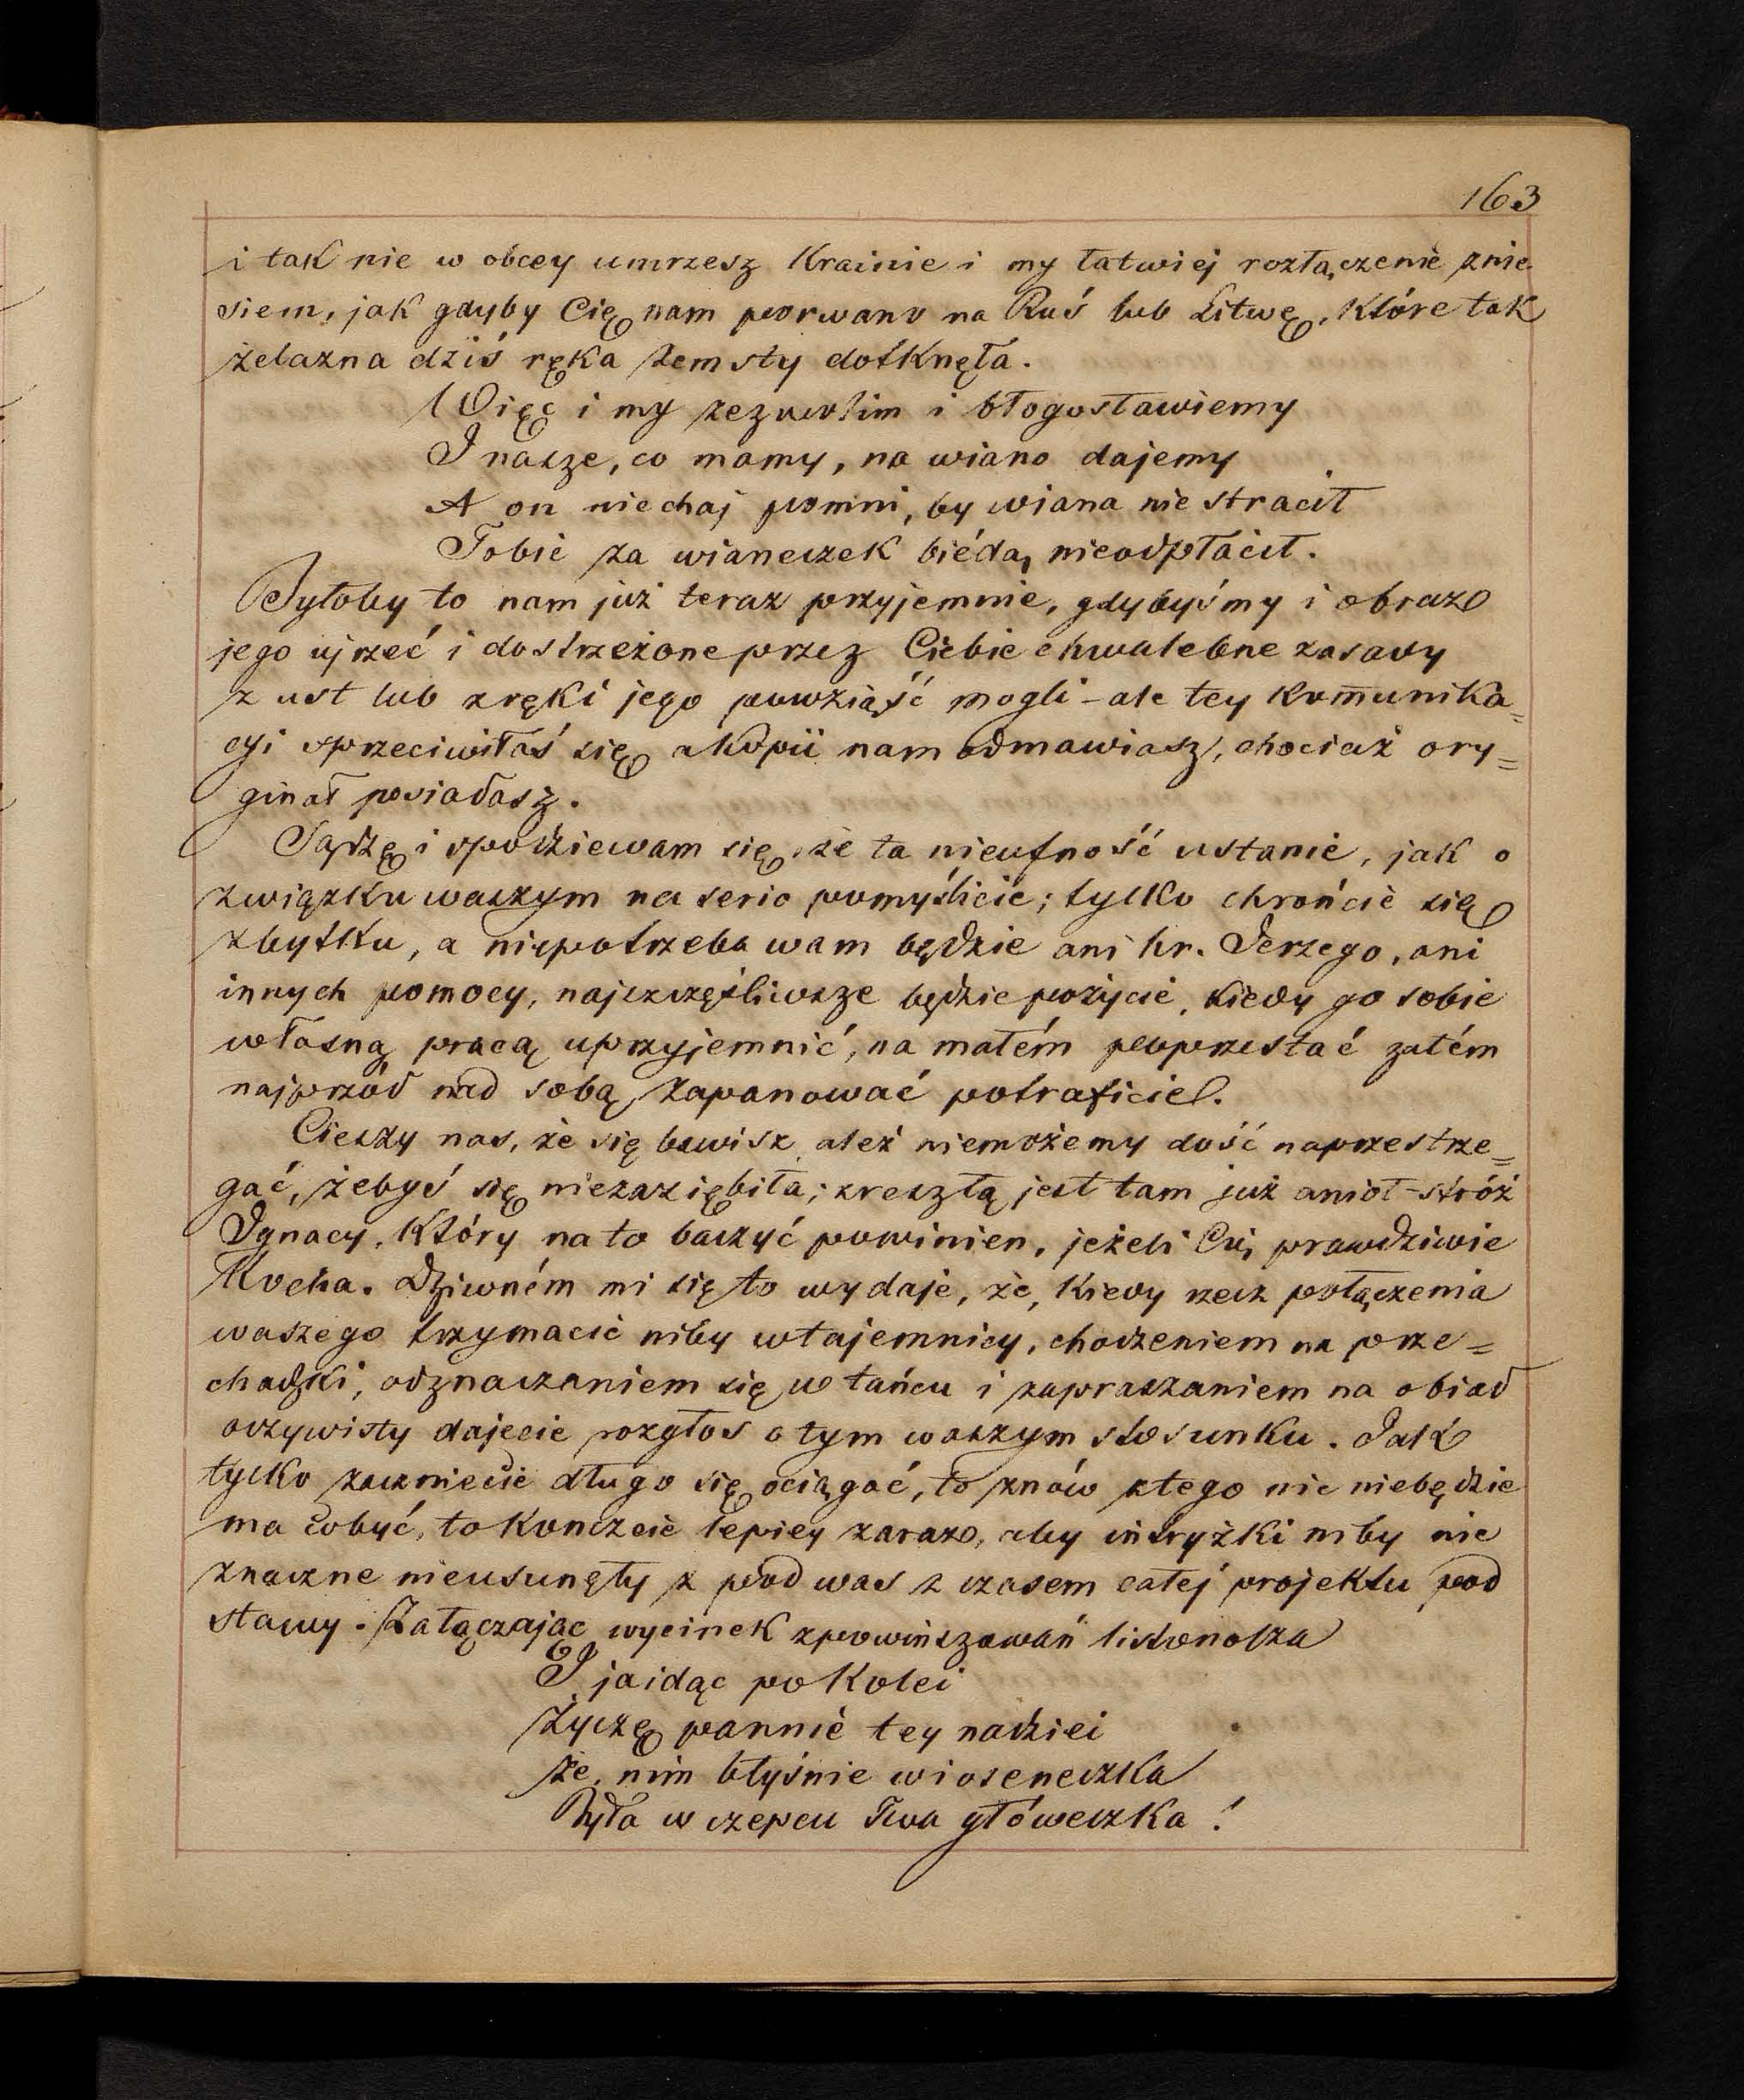 163
i tak nie w obcey umrzesz Krainie i my łatwiej rozłączenie znie
siem, jak gdyby Cię nam porwano na Ruś lub Litwę, które tak
żelazna dziś ręka zemsty dotknęła.
Więc i my zezwolim i błogosławiemy
I nasze, co mamy, na wiano dajemy
A on niechaj pomni, by wiana nie stracił
Tobie za wianeczek biédą nieodpłacił.
Byłoby to nam już teraz przyjemnie, gdybyśmy i obraz
jego ujrzeć i dostrzeżone przez Ciebie chwalebne zasady
z ust lub z ręki jego powziąść mogli - ale tey kom̄unika=
cyi sprzeciwiłaś się a kopii nam odmawiasz, chociaż ory=
ginał posiadasz.
Sądzę i spodziewam się, że ta nieufność ustanie, jak o
związku waszym na serio pomyślicie; tylko chrońcie się
zbytku, a niepotrzeba wam będzie ani hr. Jerzego, ani
innych pomocy, najszczęśliwsze będzie pożycie, kiedy go sobie
własną pracą uprzyjemnić, na małém poprzestać zatém
najprzód nad sobą zapanować potraficie.
Cieszy nas, że się bawisz, ależ niemożemy dość naprzestrze=
gać, żebyś się niezaziębiła; zresztą jest tam już anioł-stróż
Ignacy, który na to baczyć powinien, jeżeli Cię prawdziwie
Kocha. Dziwném mi się to wydaje, że, kiedy rzecz połączenia
waszego trzymacie niby w tajemnicy, chodzeniem na prze=
chadzki, odznaczaniem się w tańcu i zapraszaniem na obiad
oczywisty dajecie rozgłos o tym waszym stosunku. Jak
tylko zaczniecie długo się ociągać, to znów z tego nic niebędzie
ma cobyć, to kończcie lepiey zaraz, aby intryżki niby nie
znaczne nieusunęły z pod was z czasem całej projektu pod
stawy. Załączając wycinek z powinszowań listonosza
I ja idąc po kolei
Życzę pannie tey nadziei
Że, nim błyśnie wioseneczka
Była w czepcu Twa główeczka!